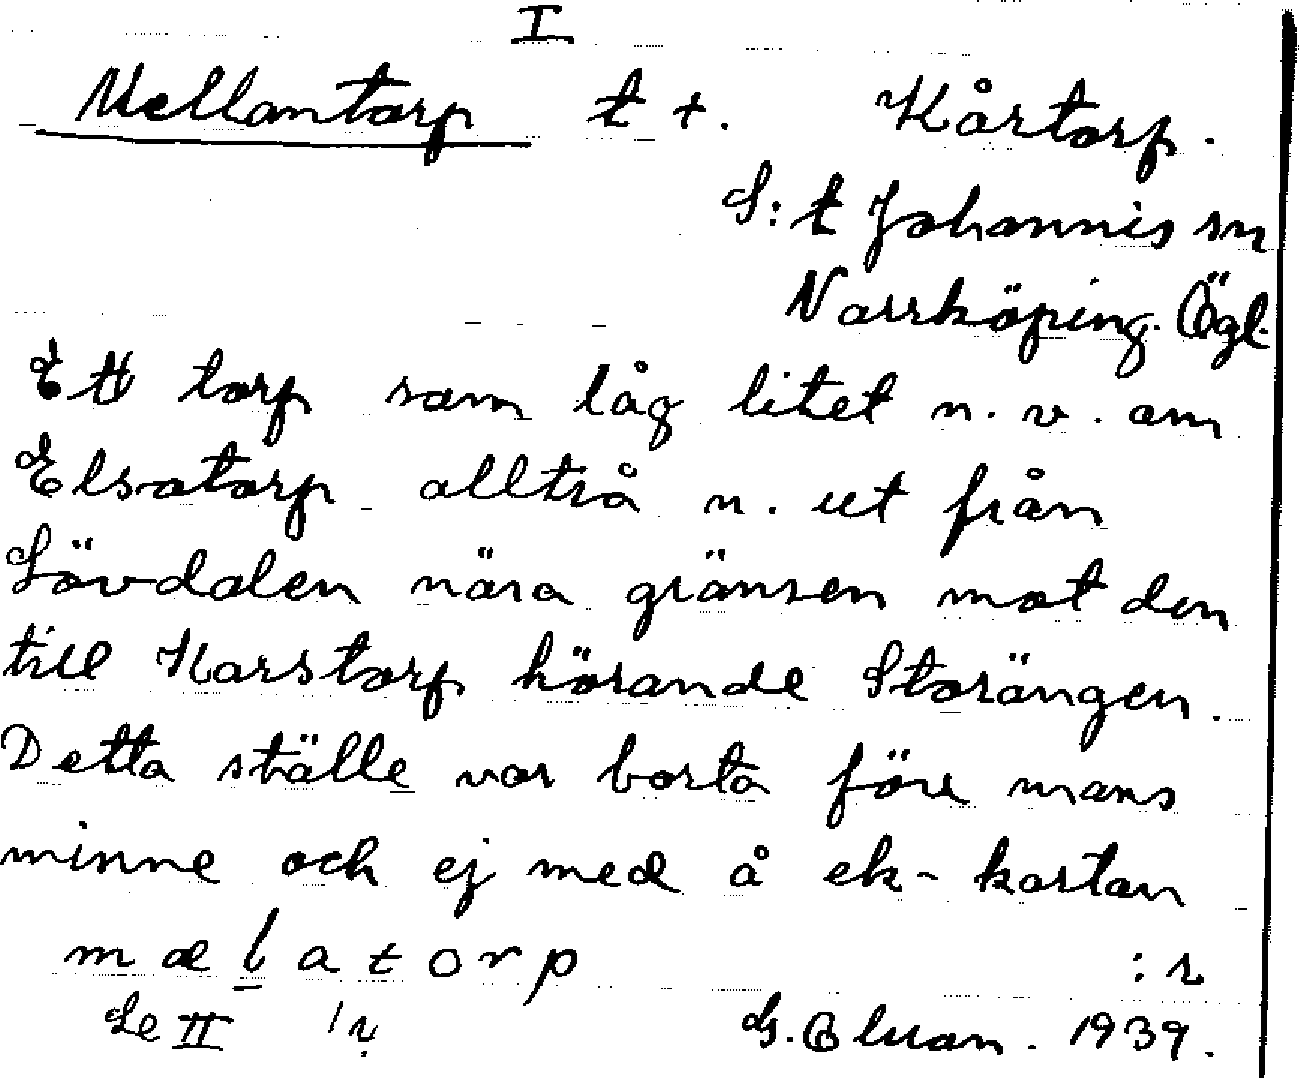 I
Mellantorp t +. Kårtorp.
S:t Johannis sn
Norrköping. Ögl.
Ett torp som låg litet n. v. om
Elsatorp alltså n. ut från
Lövdalen nära gränsen mot den
till Karstorp hörande Storängen.
Detta ställe var borta före mans
minne och ej med å ek-kartan
m æ l a t o r p :r
Se II
G. 1939.